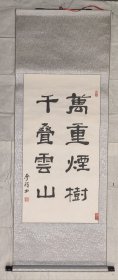 萬重煙樹
千叠雲山